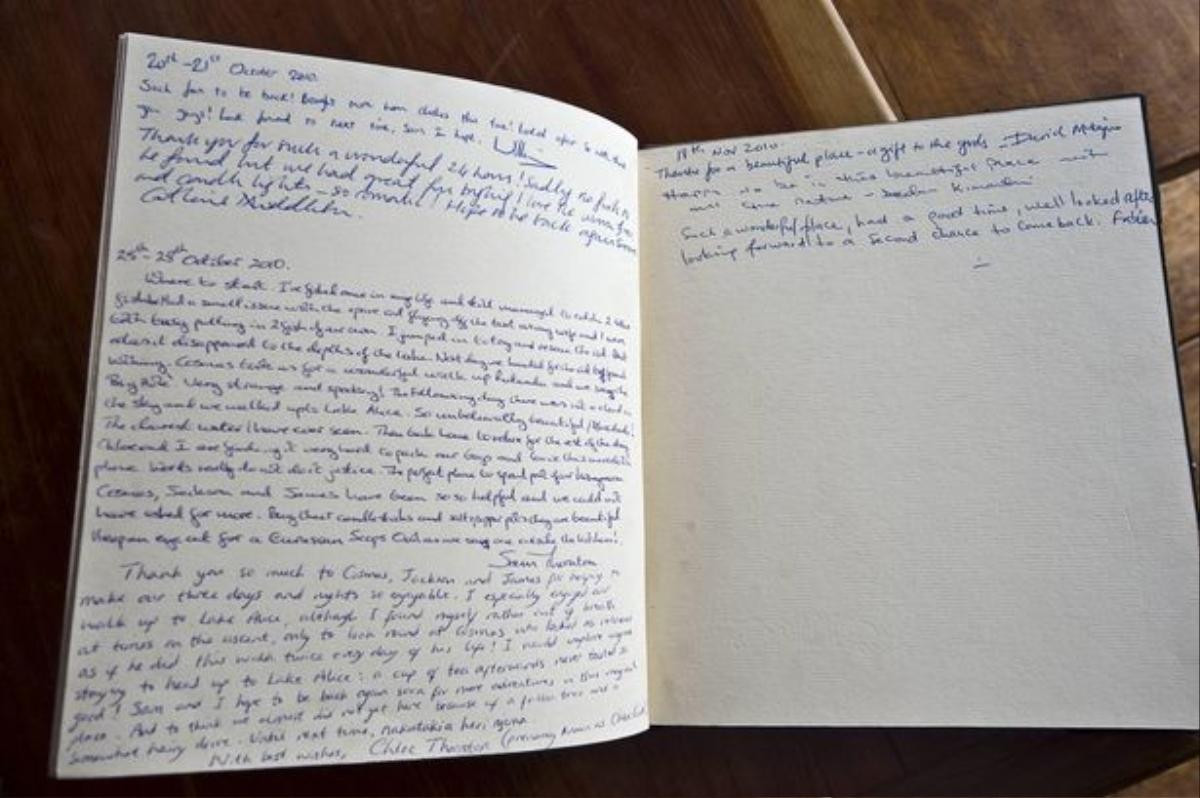 20th - 21st October 2010.
Such fun to be back! Brought more warm clothes this time! Looked after so well. Thank
you guys! Look forward to next time, soon I hope.
Thank you for such a wonderful 24 hours! Sadly no fish to
be found but we had great fun trying! I love the warm fires
and candle lights - so romantic! Hope to be back again soon.
Catherine Middleton.
25th - 28th October 2010.
Where to start. I've fished once in my life and still managed to catch 2
a small issue with the oar flying off the boat
busy putting in I jumped in to try and rescue the But
alas it disappeared to the depths of the lake. Next day we hunted for
Cosmas took us for a wonderful walk up and we saw the
Very strange and The following day there was not a cloud in
the sky and we walked up to Lake Alice. So unbelievably beautiful
The clearest water I have ever seen. Then back home to relax for the rest of the day.
Chloe and I are finding it very hard to pack our bags and leave this incredible
place. Words really do not do it justice. The perfect place to spend part of our honeymoon
Cosmas, Jackson and James have been so so helpful and we could not
have asked for more. candlesticks and salt, pepper pots they are beautiful
Keep an eye out for a Eurasian Scops Owl as we saw one outside the kitchen!
Sam Thornton
Thank you so much to Cosmas, Jackson and James for helping to
make our three days and nights so enjoyable. I especially enjoyed our
walk up to Lake Alice, although I found myself rather out of breath
at times on the ascent, only to look round at Cosmas who looked as relaxed
as if he did this walk twice every day of his life! I would implore anyone
staying to head up to Lake Alice: a cup of tea afterwards never tasted so
good! Sam and I hope to be back again soon for more adventures in this magical
place. And to think we almost did not get here because of a fallen tree and a
somewhat hairy drive. Until next time, nakutakia heri njema.
With best wishes, Chloe Thornton (previously known as
18th Nov 2010.
Thanks for a beautiful place - a gift to the gods - David
Happy to be in this beautiful place with
nature -
Such a wonderful place, had a good time, well looked after,
looking forward to a second chance to come back.